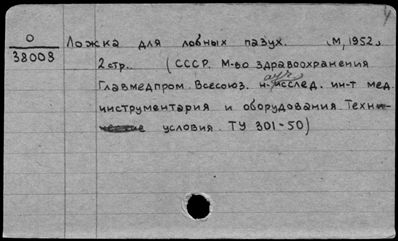 О
38009
Ложка для лобных пазух. М, 1952.
2 стр. (СССР. М-во здравоохранения
Главмедпром. Всесоюз. н.-исслед. ин-т мед.
инструментария и оборудования. Техни-
ческие условия. ТУ 301-50)